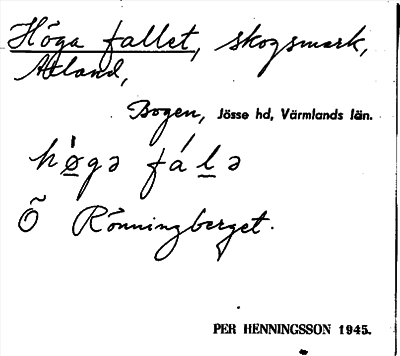 Höga fallet, skogsmark,
Utland,
Bogen, Jösse hd, Värmlands län.
hø̱̀gə fá l̲ə
Õ Rönningberget.
PER HENNINGSSON 1945.